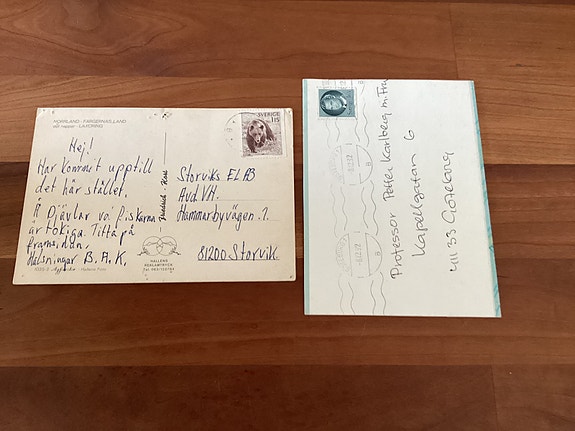 NORRLAND - FÄRGERNAS LAND
Hej!
Har kommit upp till
det här stället.
Djävlar va fiskarna
är tokiga. Titta på
framsidan.
Hälsningar B. A. K.
SVERIGE
115
Storviks EL AB
Avd VH.
Hammarbyvägen 7.
81200 Storvik
HALLENS
REKLAMTRYCK
Professor Petter Karlberg m. Fru
Kapellgatan 6
411 33 Göteborg